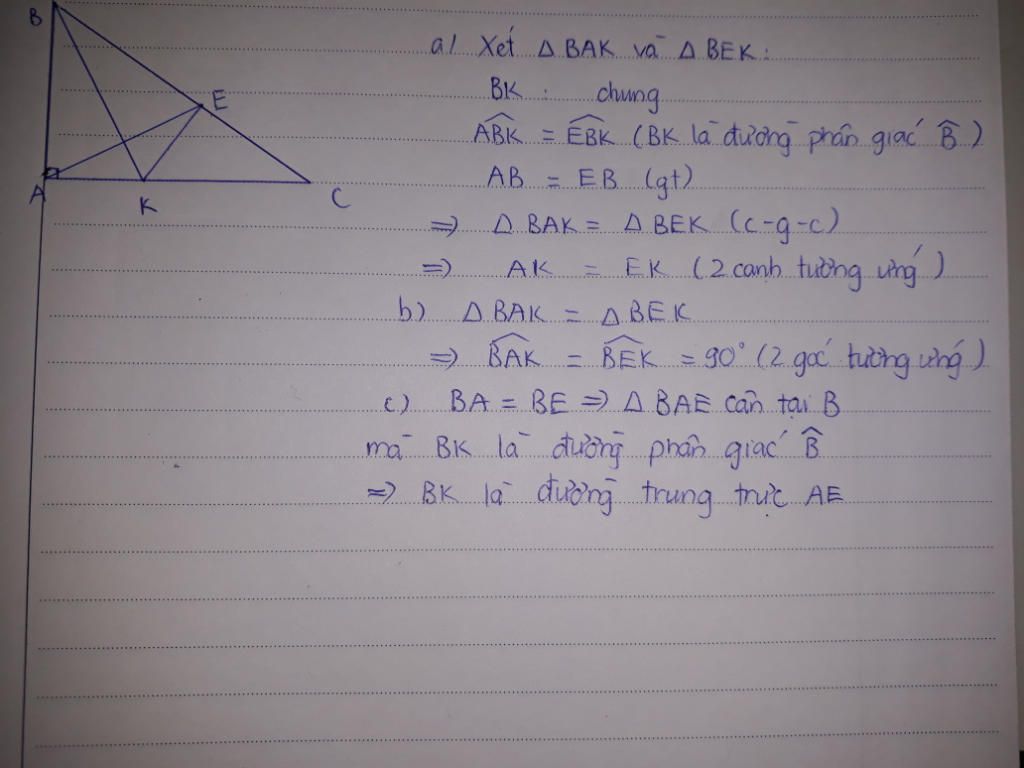 B
E
A
K
C
a) Xét △ BAK và △ BEK :
BK : chung
\widehat{ABK} = \widehat{EBK} (BK là đường phân giác \widehat{B})
AB = EB (gt)
=> △ BAK = △ BEK (c-g-c)
=> AK = EK (2 cạnh tương ứng)
b) △ BAK = △ BEK
=> \widehat{BAK} = \widehat{BEK} = 90° (2 góc tương ứng)
c) BA = BE => △ BAE cân tại B
mà BK là đường phân giác \widehat{B}
=> BK là đường trung trực AE